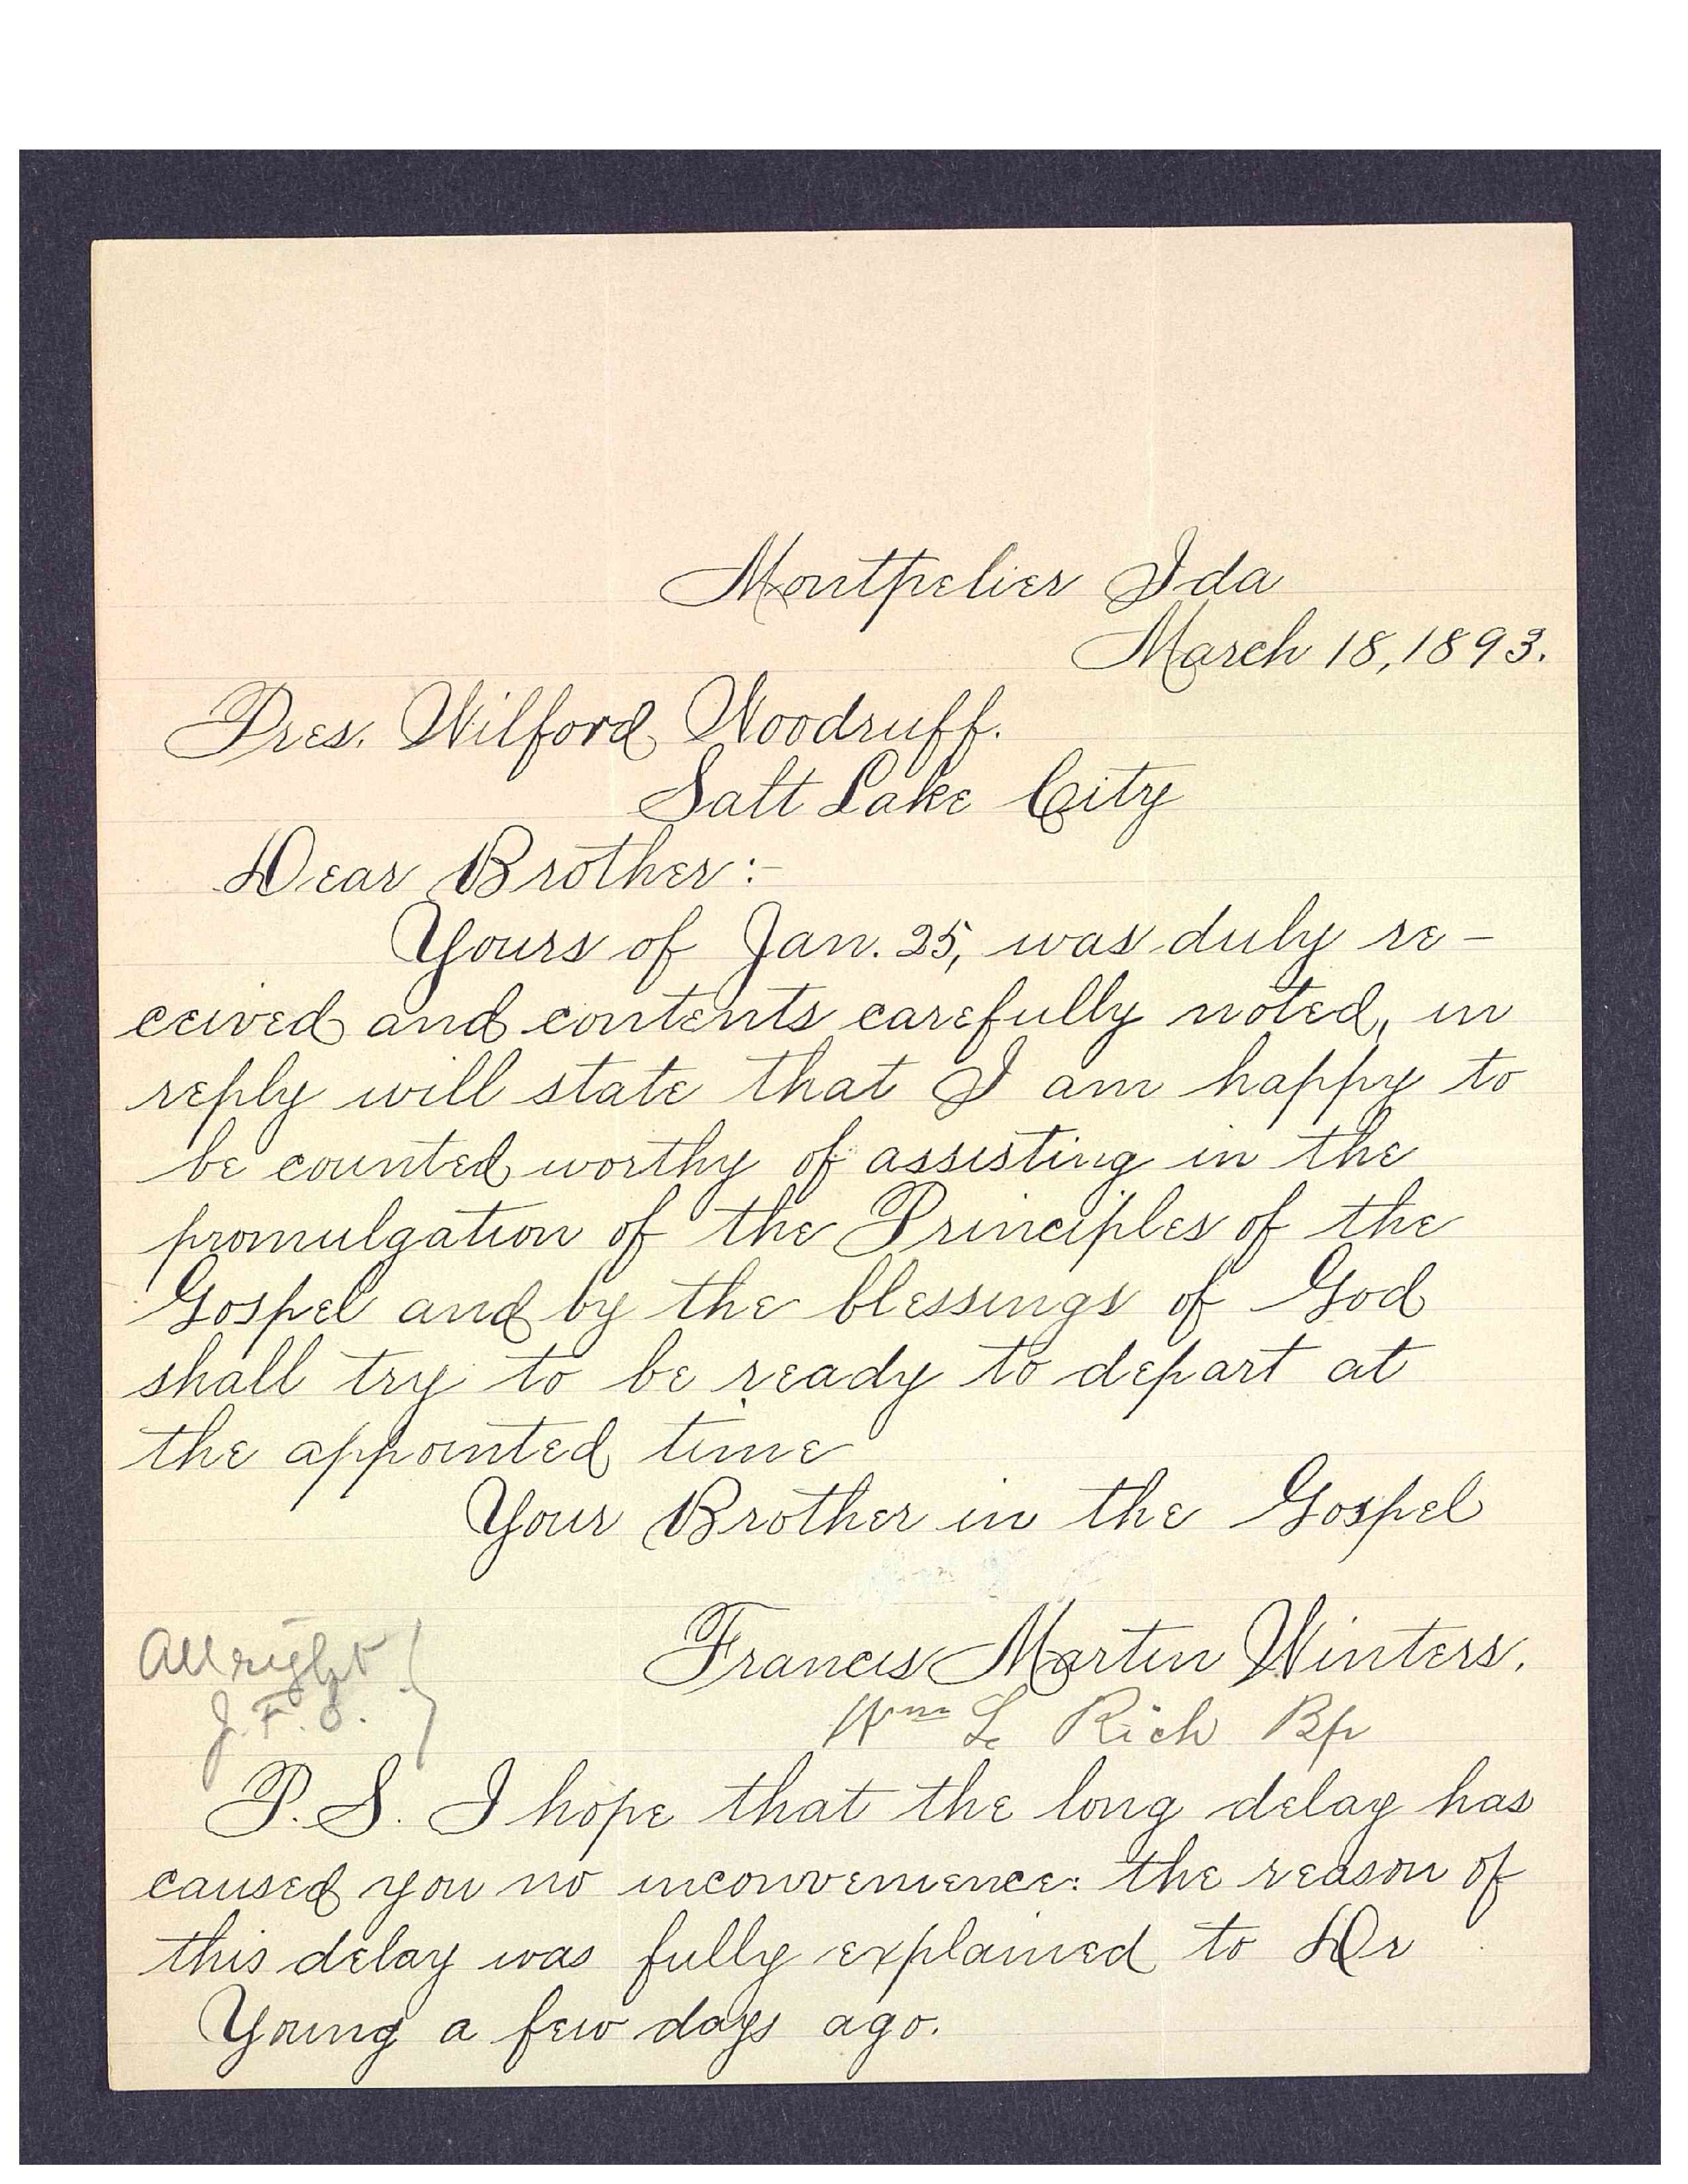 Montpelier Ida
March 18, 1893.
Pres. Wilford Woodruff.
Salt Lake City
Dear Brother:-
Yours of Jan. 25, was duly re-
ceived and contents carefully noted, in
reply will state that I am happy to
be counted worthy of assisting in the
promulgation of the Principles of the
Gospel and by the blessings of God
shall try to be ready to depart at
the appointed time
Your Brother in the Gospel
Francis Martin Winters.
Wm L Rich Bp
All right
J. F. S.
P. S. I hope that the long delay has
caused you no inconvenience: the reason of
this delay was fully explained to Dr
Young a few days ago.